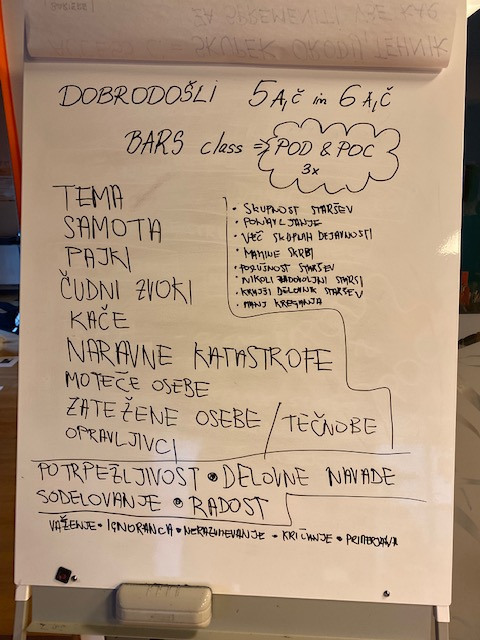 ZA SPREMENITI VSE KAR
SKUPEK ORODIJ, TEHNIK
DOBRODOŠLI 5A,Č in 6A,Č
BARS class => POD & POC
3x
TEMA
SAMOTA
PAJKI
ČUDNI ZVOKI
KAČE
NARAVNE KATASTROFE
MOTEČE OSEBE
ZATEŽENE OSEBE / TEČNOBE
OPRAVLJIVCI
• SKUPNOST STARŠEV
• PONAVLJANJE
• VEČ SKUPNIH DEJAVNOSTI
• MAMINE SKRBI
• POSLUŠNOST STARŠEV
• NIKOLI ZADOVOLJNI STARŠI
• KRAJŠI DELOVNIK STARŠEV
• MANJ KREGANJA
POTRPEŽLJIVOST • DELOVNE NAVADE
SODELOVANJE • RADOST
VAŽENJE • IGNORANCA • NERAZUMEVANJE • KRIČANJE • PRIMERJAVA